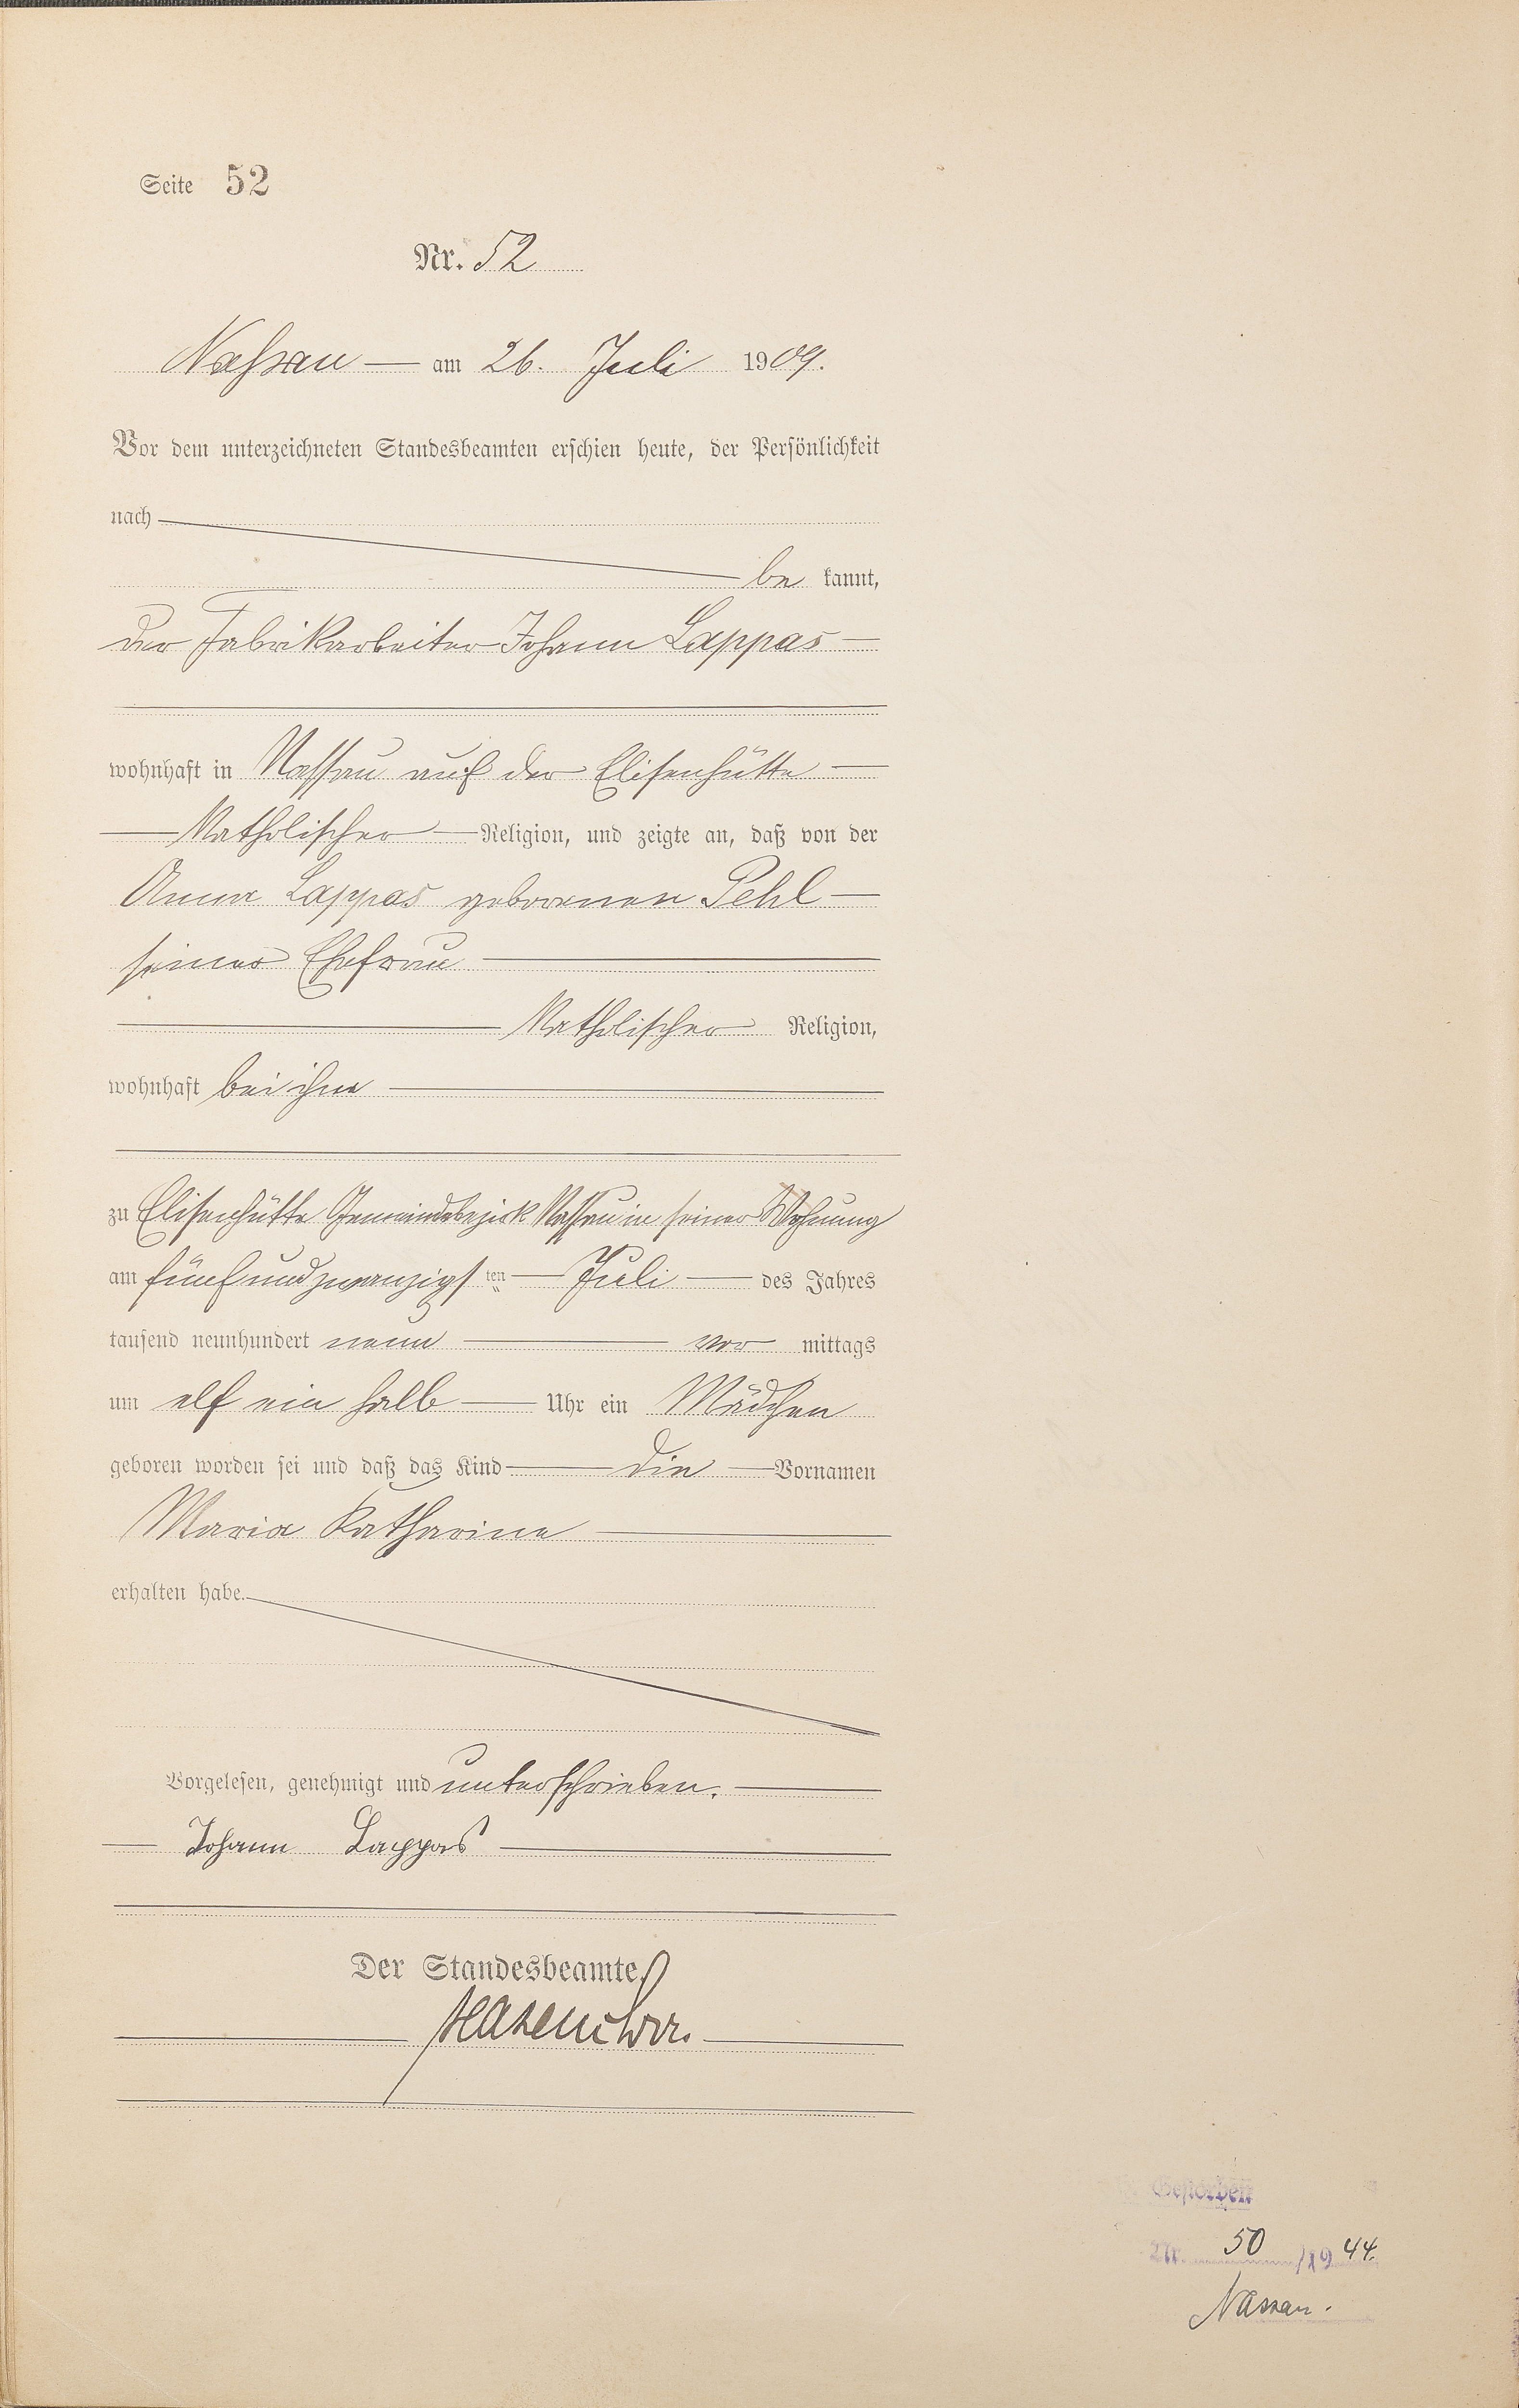 Seite 52
Nr. 52
Nassau — am 26. Juli 1909.
Vor dem unterzeichneten Standesbeamten erschien heute, der Persönlichkeit
nach
be kannt,
der Fabrikarbeiter Johann Lappas —
wohnhaft in Nassau auf der Elisenhütte —
— Katholischer — Religion, und zeigte an, daß von der
Anna Lappas geborenen Pehl —
seiner Ehefrau —
— Katholischer Religion,
wohnhaft bei ihm —
zu Elisenhütte Gemeindebezirk Nassau in seiner Wohnung
am fünfundzwanzigsten — Juli — des Jahres
tausend neunhundert neun — vor mittags
um elf ein halb — Uhr ein Mädchen
geboren worden sei und daß das Kind — die — Vornamen
Maria Katharina —
erhalten habe.
Vorgelesen, genehmigt und unterschrieben. —
— Johann Lappas —
Der Standesbeamte.
Gestorben
Nr. 50 /1944.
Nassau.